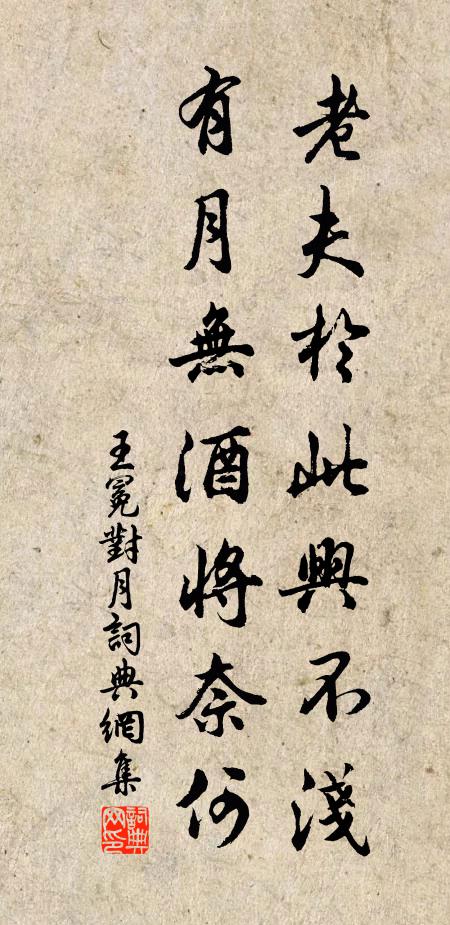 老夫於此興不淺
有月無酒將奈何
王冕對月詞典網集
詞典網印